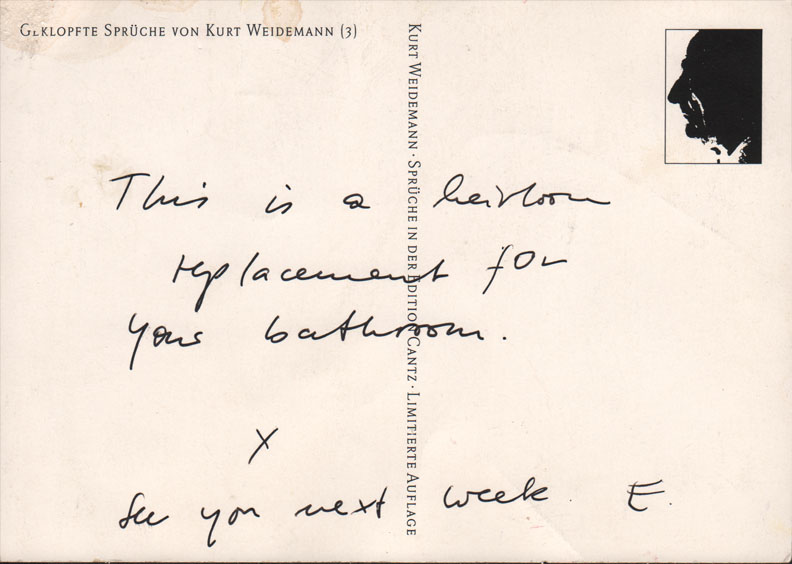 GEKLOPFTE SPRÜCHE VON KURT WEIDEMANN (3)
KURT WEIDEMANN · SPRÜCHE IN DER EDITION CANTZ · LIMITIERTE AUFLAGE
This is a heirloom
replacement for
your bathroom.
x
See you next week. E.